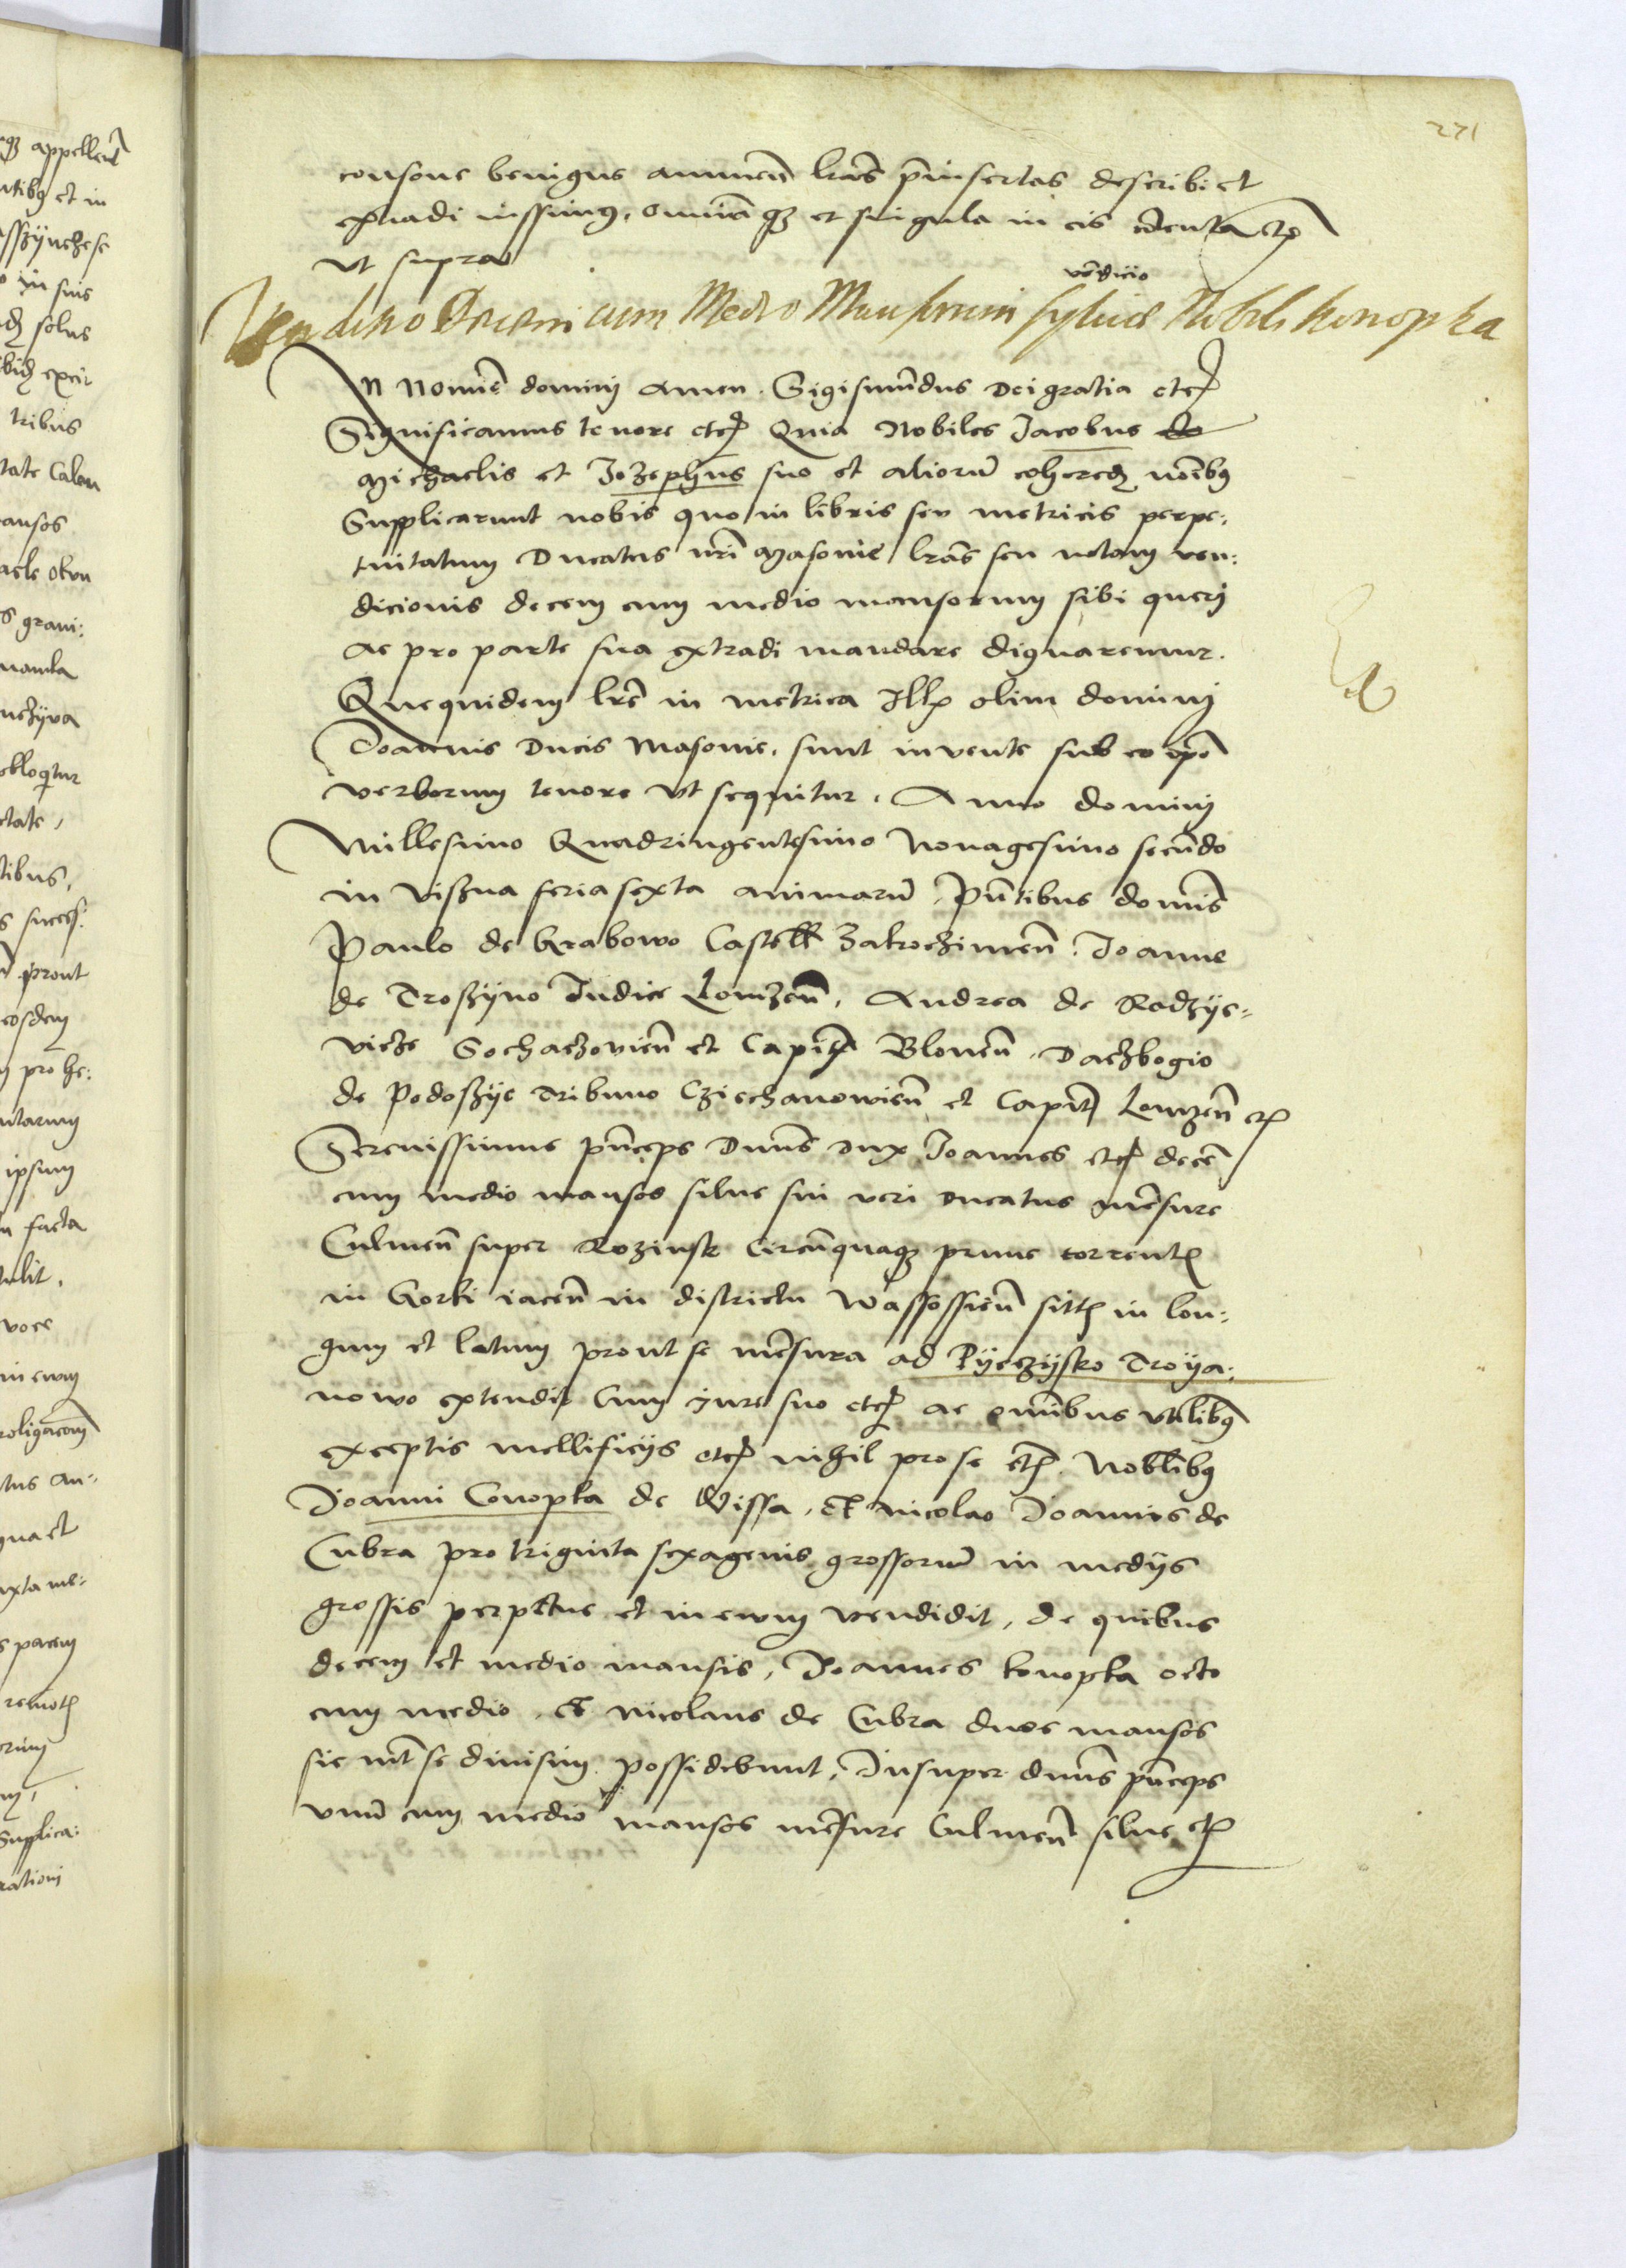 271
consone benigne annuen lras preinsertas describi et
extradi iussimus, omnia qz et singula in eis contenta etc
Vt supra
vendicio
Venditio Decem cum Medio Mansorum Sylvae Nobili Konopka
In Nomie domini Amen. Sigismundus Dei gratia etc
Significamus tenore etc Quia Nobiles Jacobus
Michaelis et Jozephus suo et aliorum cohered noibus
Supplicarunt nobis quo in libris seu metricis perpe:
tuitatum Ducatus nri Masovie lras seu notam ven:
dicionis decem cum medio mansorum sibi queri
ac pro parte sua extradi mandare dignaremur.
Que quidem lre in metrica Ill olim domini
Joannis Ducis Masovie. sunt invente sub eo qui
verborum tenore Vt sequitur. Anno domini
Millesimo Quadringentesimo Nonagesimo secundo
in Viszna feria sexta animarum, pntibus dominis
Paulo de Grabowo Castell Zakroczimen. Joanne
de Troszyno Judice Lomzen, Andrea de Radzye:
vicze Sochaczovien et Capit Blonen, Daczbogio
de Podoszye Tribuno Cziechanowien et Capit Lomzen etc
Serenissimus princeps Dnus dux Joannes etc decem
cum medio mansos silve sui veri ducatus mensure
Culmen super Rozinsk Circumquaqz prime torrentem
in Gorki iacen in districtu Wassossien sitos in lon:
gum et latum prout se mensura ad Pyeczysko Troya:
nowo extendit Cum jure suo etc ac omnibus utilibus
exceptis mellificiis etc nihil pro se etc. Nobilibus
Joanni Conopka de Wissa, Et Nicolao Joannis de
Cubra pro triginta sexagenis grossorum in mediis
grossis perpetue et in ewum vendidit, de quibus
decem et medio mansis, Joannes konopka octo
cum medio, Et Nicolaus de Cubra duos mansos
sic int se divisim possidebunt, Insuper dnus princeps
unum cum medio mansos mensure Culmen silve etc